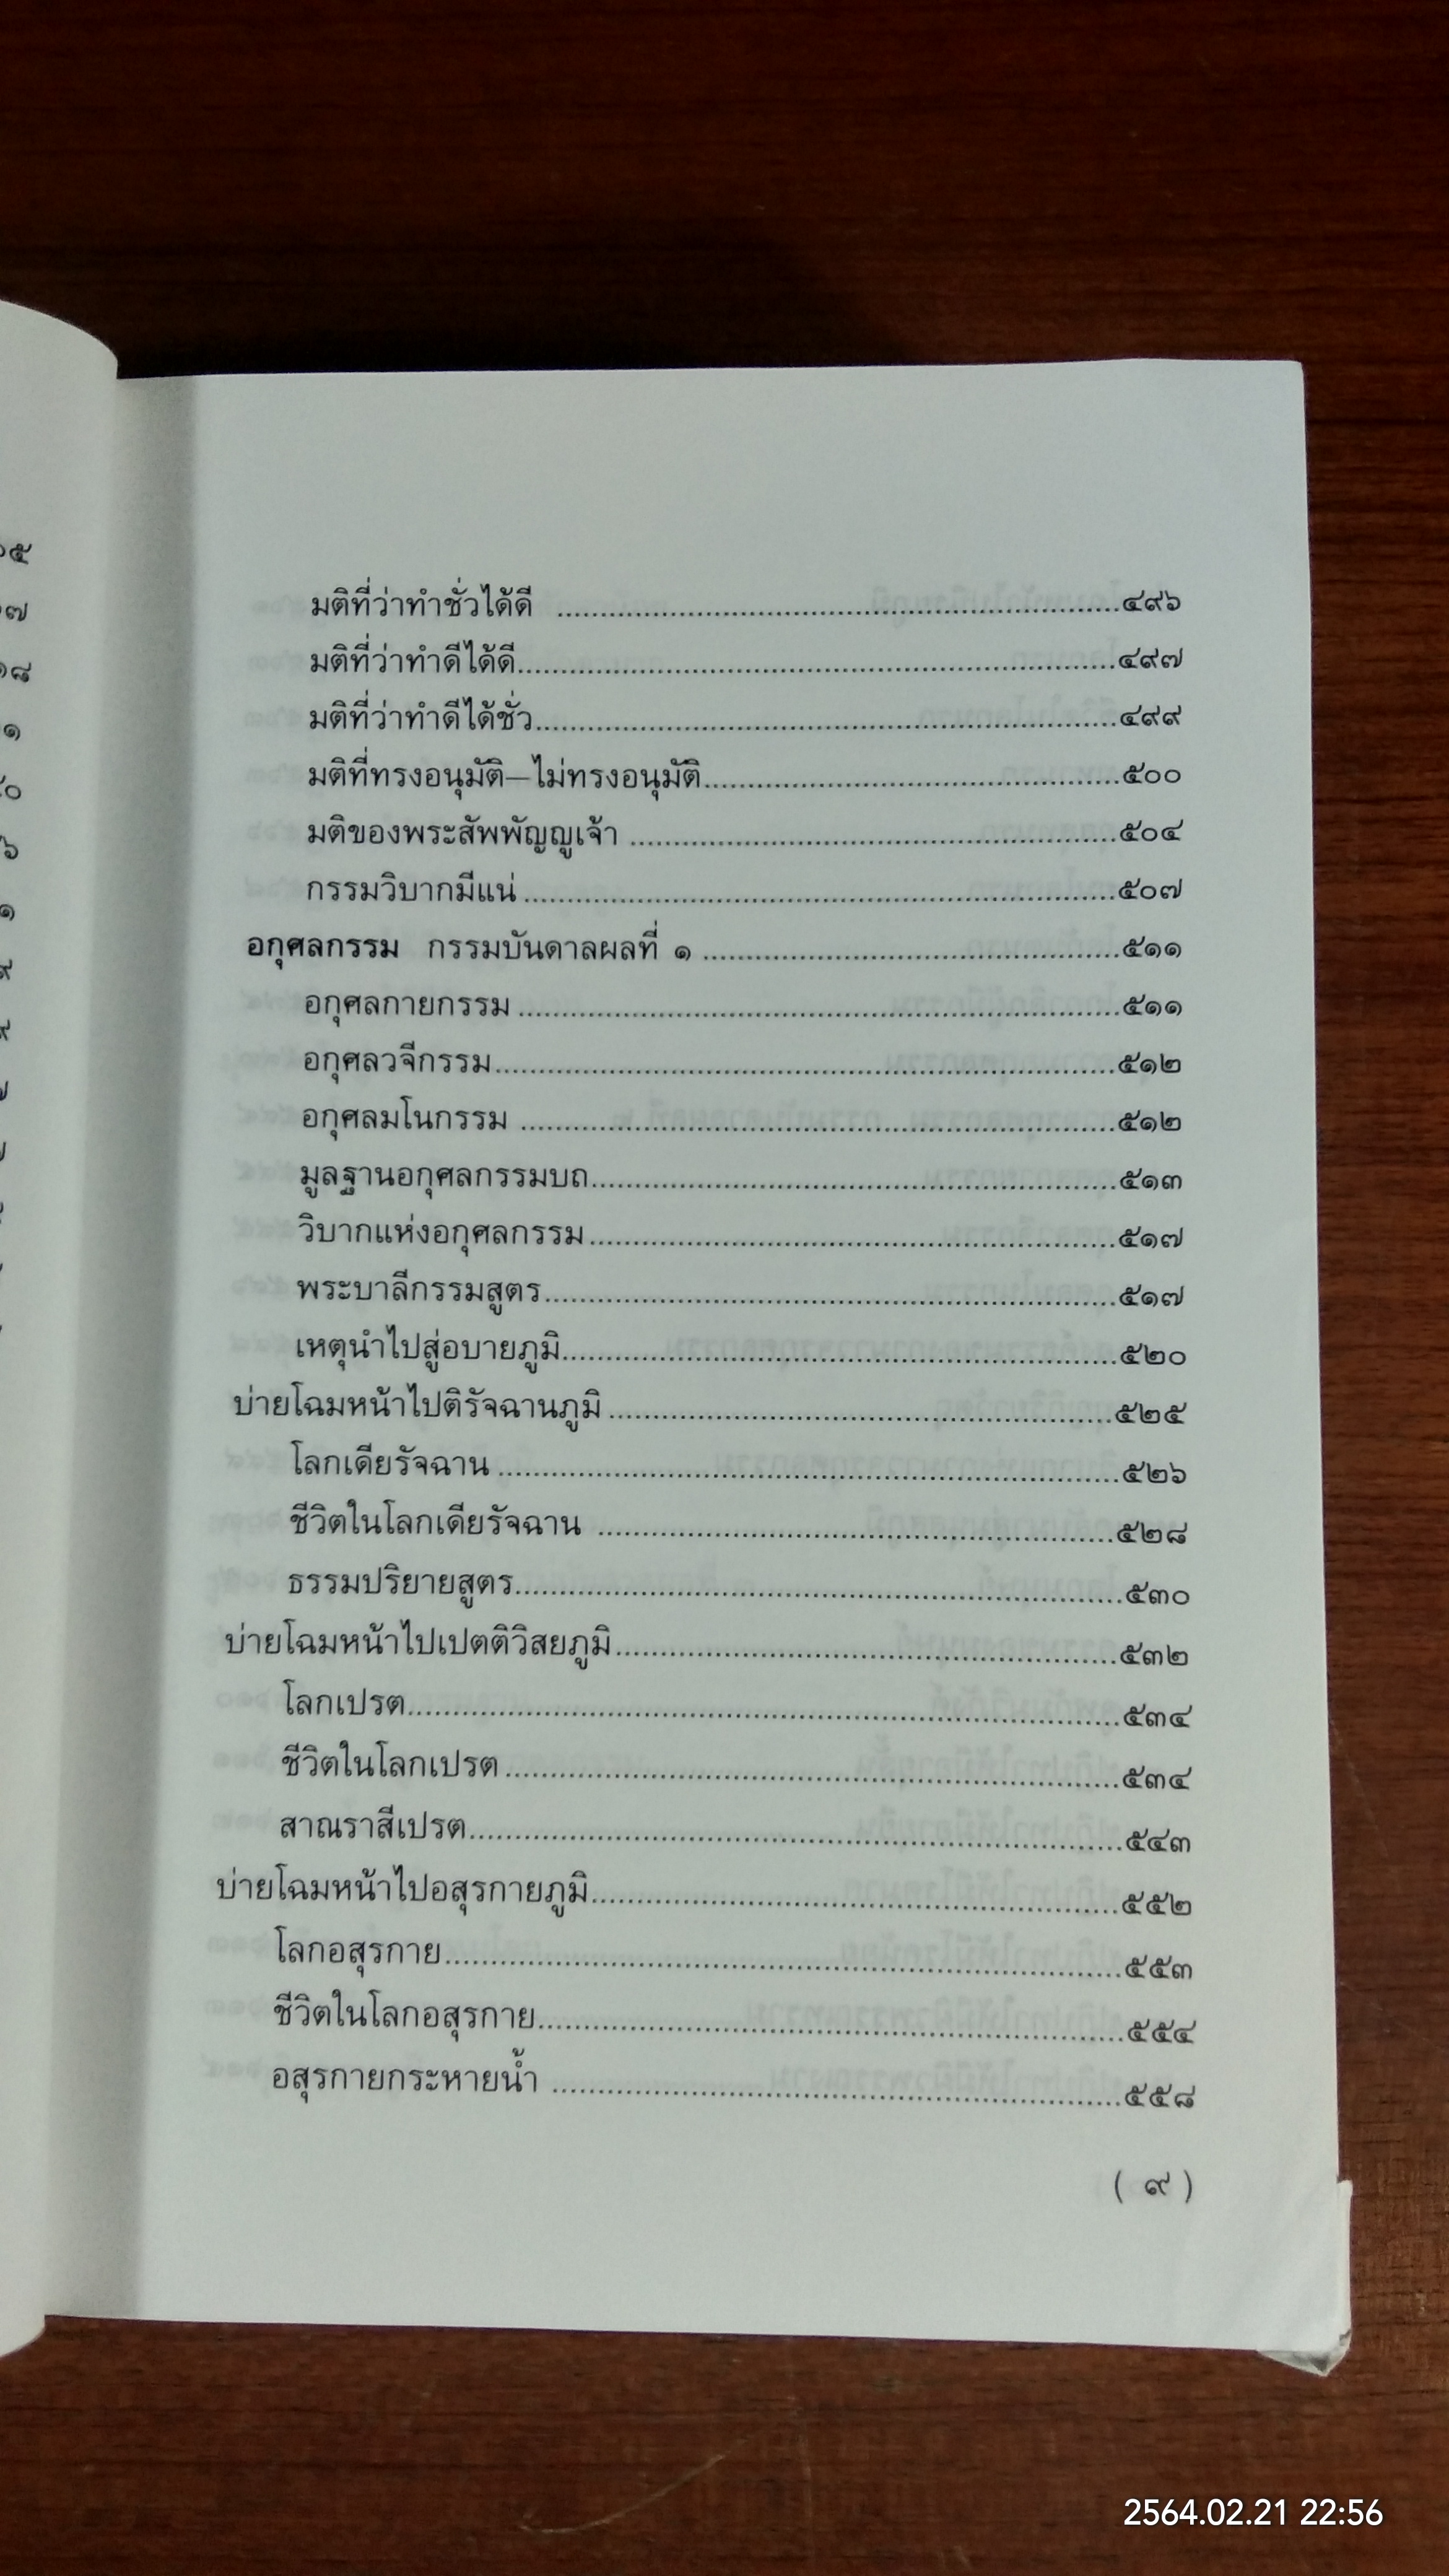 มติที่ว่าทำชั่วได้ดี ........................๔๙๖
มติที่ว่าทำดีได้ดี........................๔๙๗
มติที่ว่าทำดีได้ชั่ว........................๔๙๙
มติที่ทรงอนุมัติ–ไม่ทรงอนุมัติ........................๕๐๐
มติของพระสัพพัญญูเจ้า ........................๕๐๔
กรรมวิบากมีแน่ ........................๕๐๗
อกุศลกรรม กรรมบันดาลผลที่ ๑ ........................๕๑๑
อกุศลกายกรรม ........................๕๑๑
อกุศลวจีกรรม........................๕๑๒
อกุศลมโนกรรม ........................๕๑๒
มูลฐานอกุศลกรรมบถ........................๕๑๓
วิบากแห่งอกุศลกรรม........................๕๑๗
พระบาลีกรรมสูตร........................๕๑๗
เหตุนำไปสู่อบายภูมิ........................๕๒๐
บ่ายโฉมหน้าไปติรัจฉานภูมิ ........................๕๒๕
โลกเดียรัจฉาน ........................๕๒๖
ชีวิตในโลกเดียรัจฉาน ........................๕๒๘
ธรรมปริยายสูตร........................๕๓๐
บ่ายโฉมหน้าไปเปตติวิสยภูมิ........................๕๓๒
โลกเปรต........................๕๓๔
ชีวิตในโลกเปรต ........................๕๓๔
สาณราสีเปรต........................๕๔๓
บ่ายโฉมหน้าไปอสุรกายภูมิ........................๕๕๒
โลกอสุรกาย........................๕๕๓
ชีวิตในโลกอสุรกาย........................๕๕๔
อสุรกายกระหายน้ำ ........................๕๕๘
( ๙ )
2564.02.21 22:56